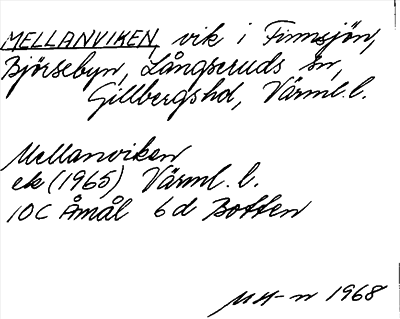 MELLANVIKEN, vik i Finnsjön,
Björsebyn, Långseruds sn,
Gillbergshd, Värml. l.
Mellanviken
ek (1965) Värml. l.
10C Åmål 6d Botten
1968